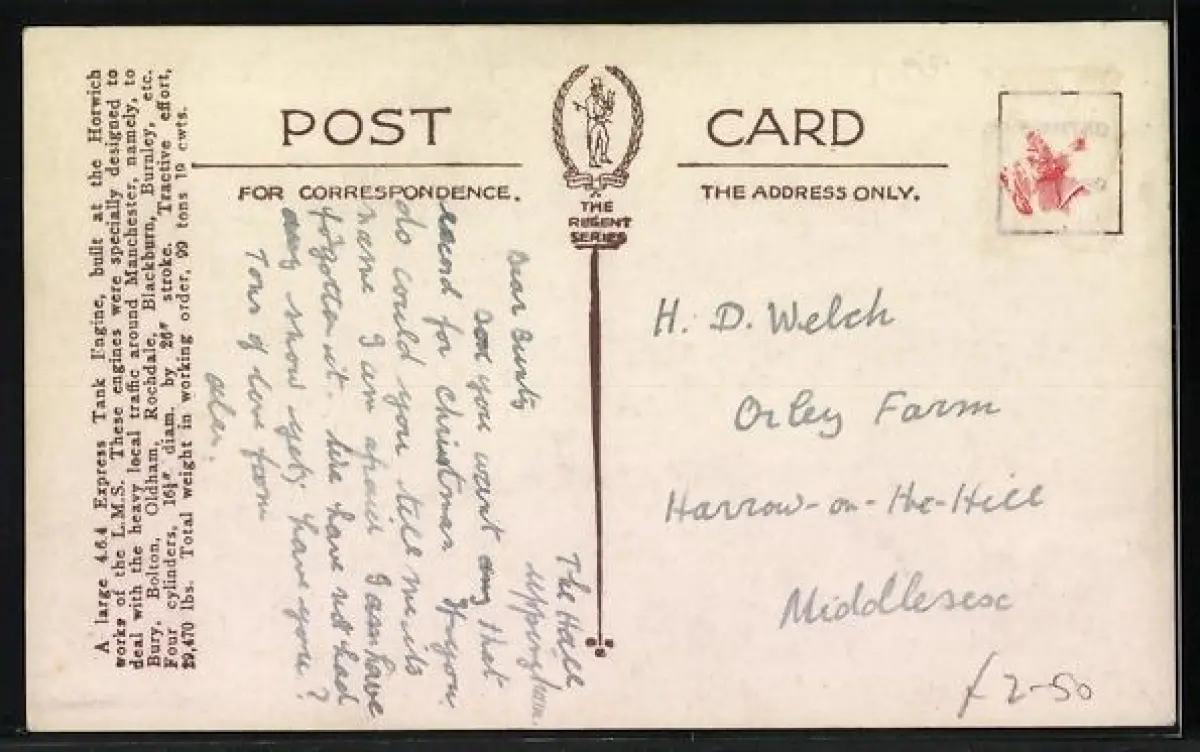 POST CARD
FOR CORRESPONDENCE.
THE ADDRESS ONLY.
THE
REGENT
SERIES
A large 4.6.4 Express Tank Engine, built at the Horwich
works of the L.M.S. These engines were specially designed to
deal with the heavy local traffic around Manchester, namely, to
Bury, Bolton, Oldham, Rochdale, Blackburn, Burnley, etc.
Four cylinders, 16½" diam. by 26" stroke. Tractive effort,
29,470 lbs. Total weight in working order, 99 tons 19 cwts.
The Hall
Uppingham.
Dear Bunty
you want that
record for Christmas. If you
do could you tell me its
name I am afraid I have
forgotten it. We have not had
any snow yet, have you?
Tons of love from
H. D. Welch
Orley Farm
Harrow-on-the-Hill
Middlesex
£2-50